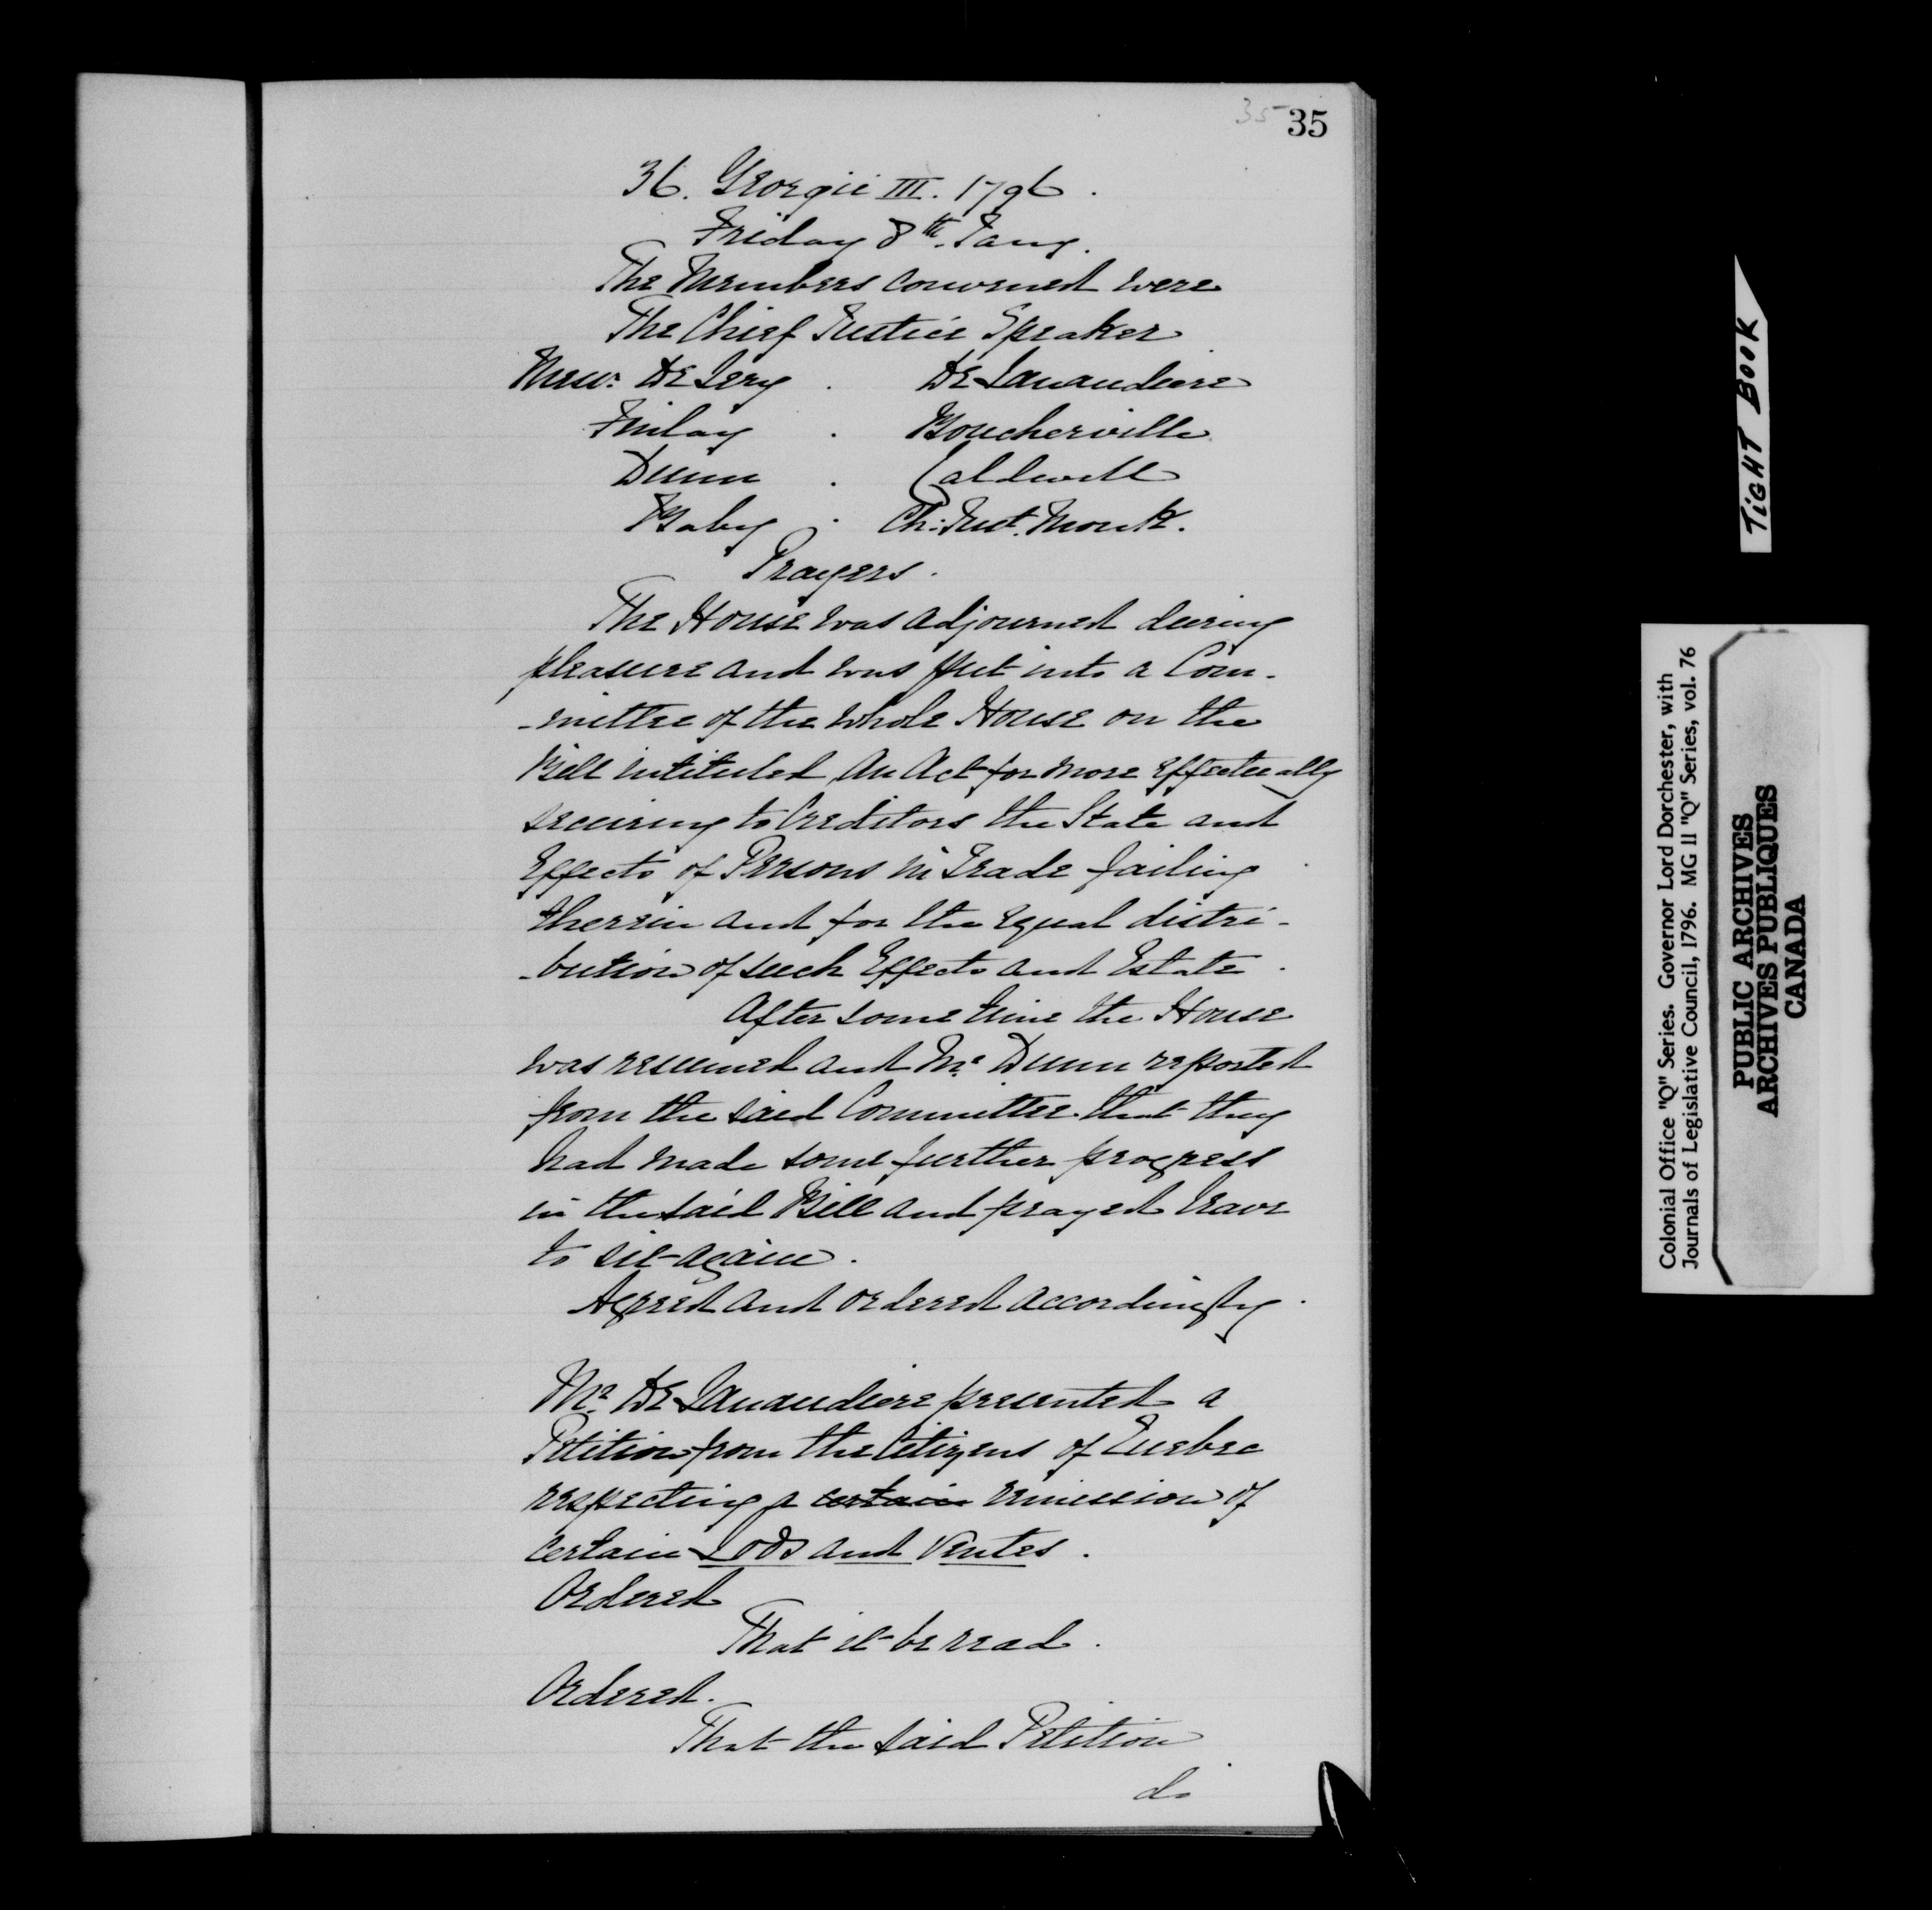 35 35
36. Georgii III. 1796.
Friday 8th. Jany.
The Members convened were
The Chief Justice Speaker
Messrs. De Lery . De Lanaudiere
Finlay . Boucherville
Dunn . Caldwell
Baby . Ch: Just. Monk.
Prayers.
The House was adjourned during
pleasure and was put into a Com-
-mittee of the whole House on the
Bill intituled An Act for more effectually
securing to Creditors the State and
Effects of Persons in Trade failing
therein and for the equal distri-
-bution of such Effects and Estate.
After some time the House
was resumed and Mr. Dunn reported
from the said Committee that they
had made some further progress
in the said Bill and prayed leave
to sit again.
Agreed and ordered accordingly.
Mr. De Lanaudiere presented a
Petition from the Citizens of Quebec
respecting a certain remission of
certain Lods and Ventes.
Ordered
That it be read.
Ordered.
That the said Petition
do
TiGHT BOOK
Colonial Office "Q" Series. Governor Lord Dorchester, with
Journals of Legislative Council, 1796. MG 11 "Q" Series, vol. 76
PUBLIC ARCHIVES
ARCHIVES PUBLIQUES
CANADA